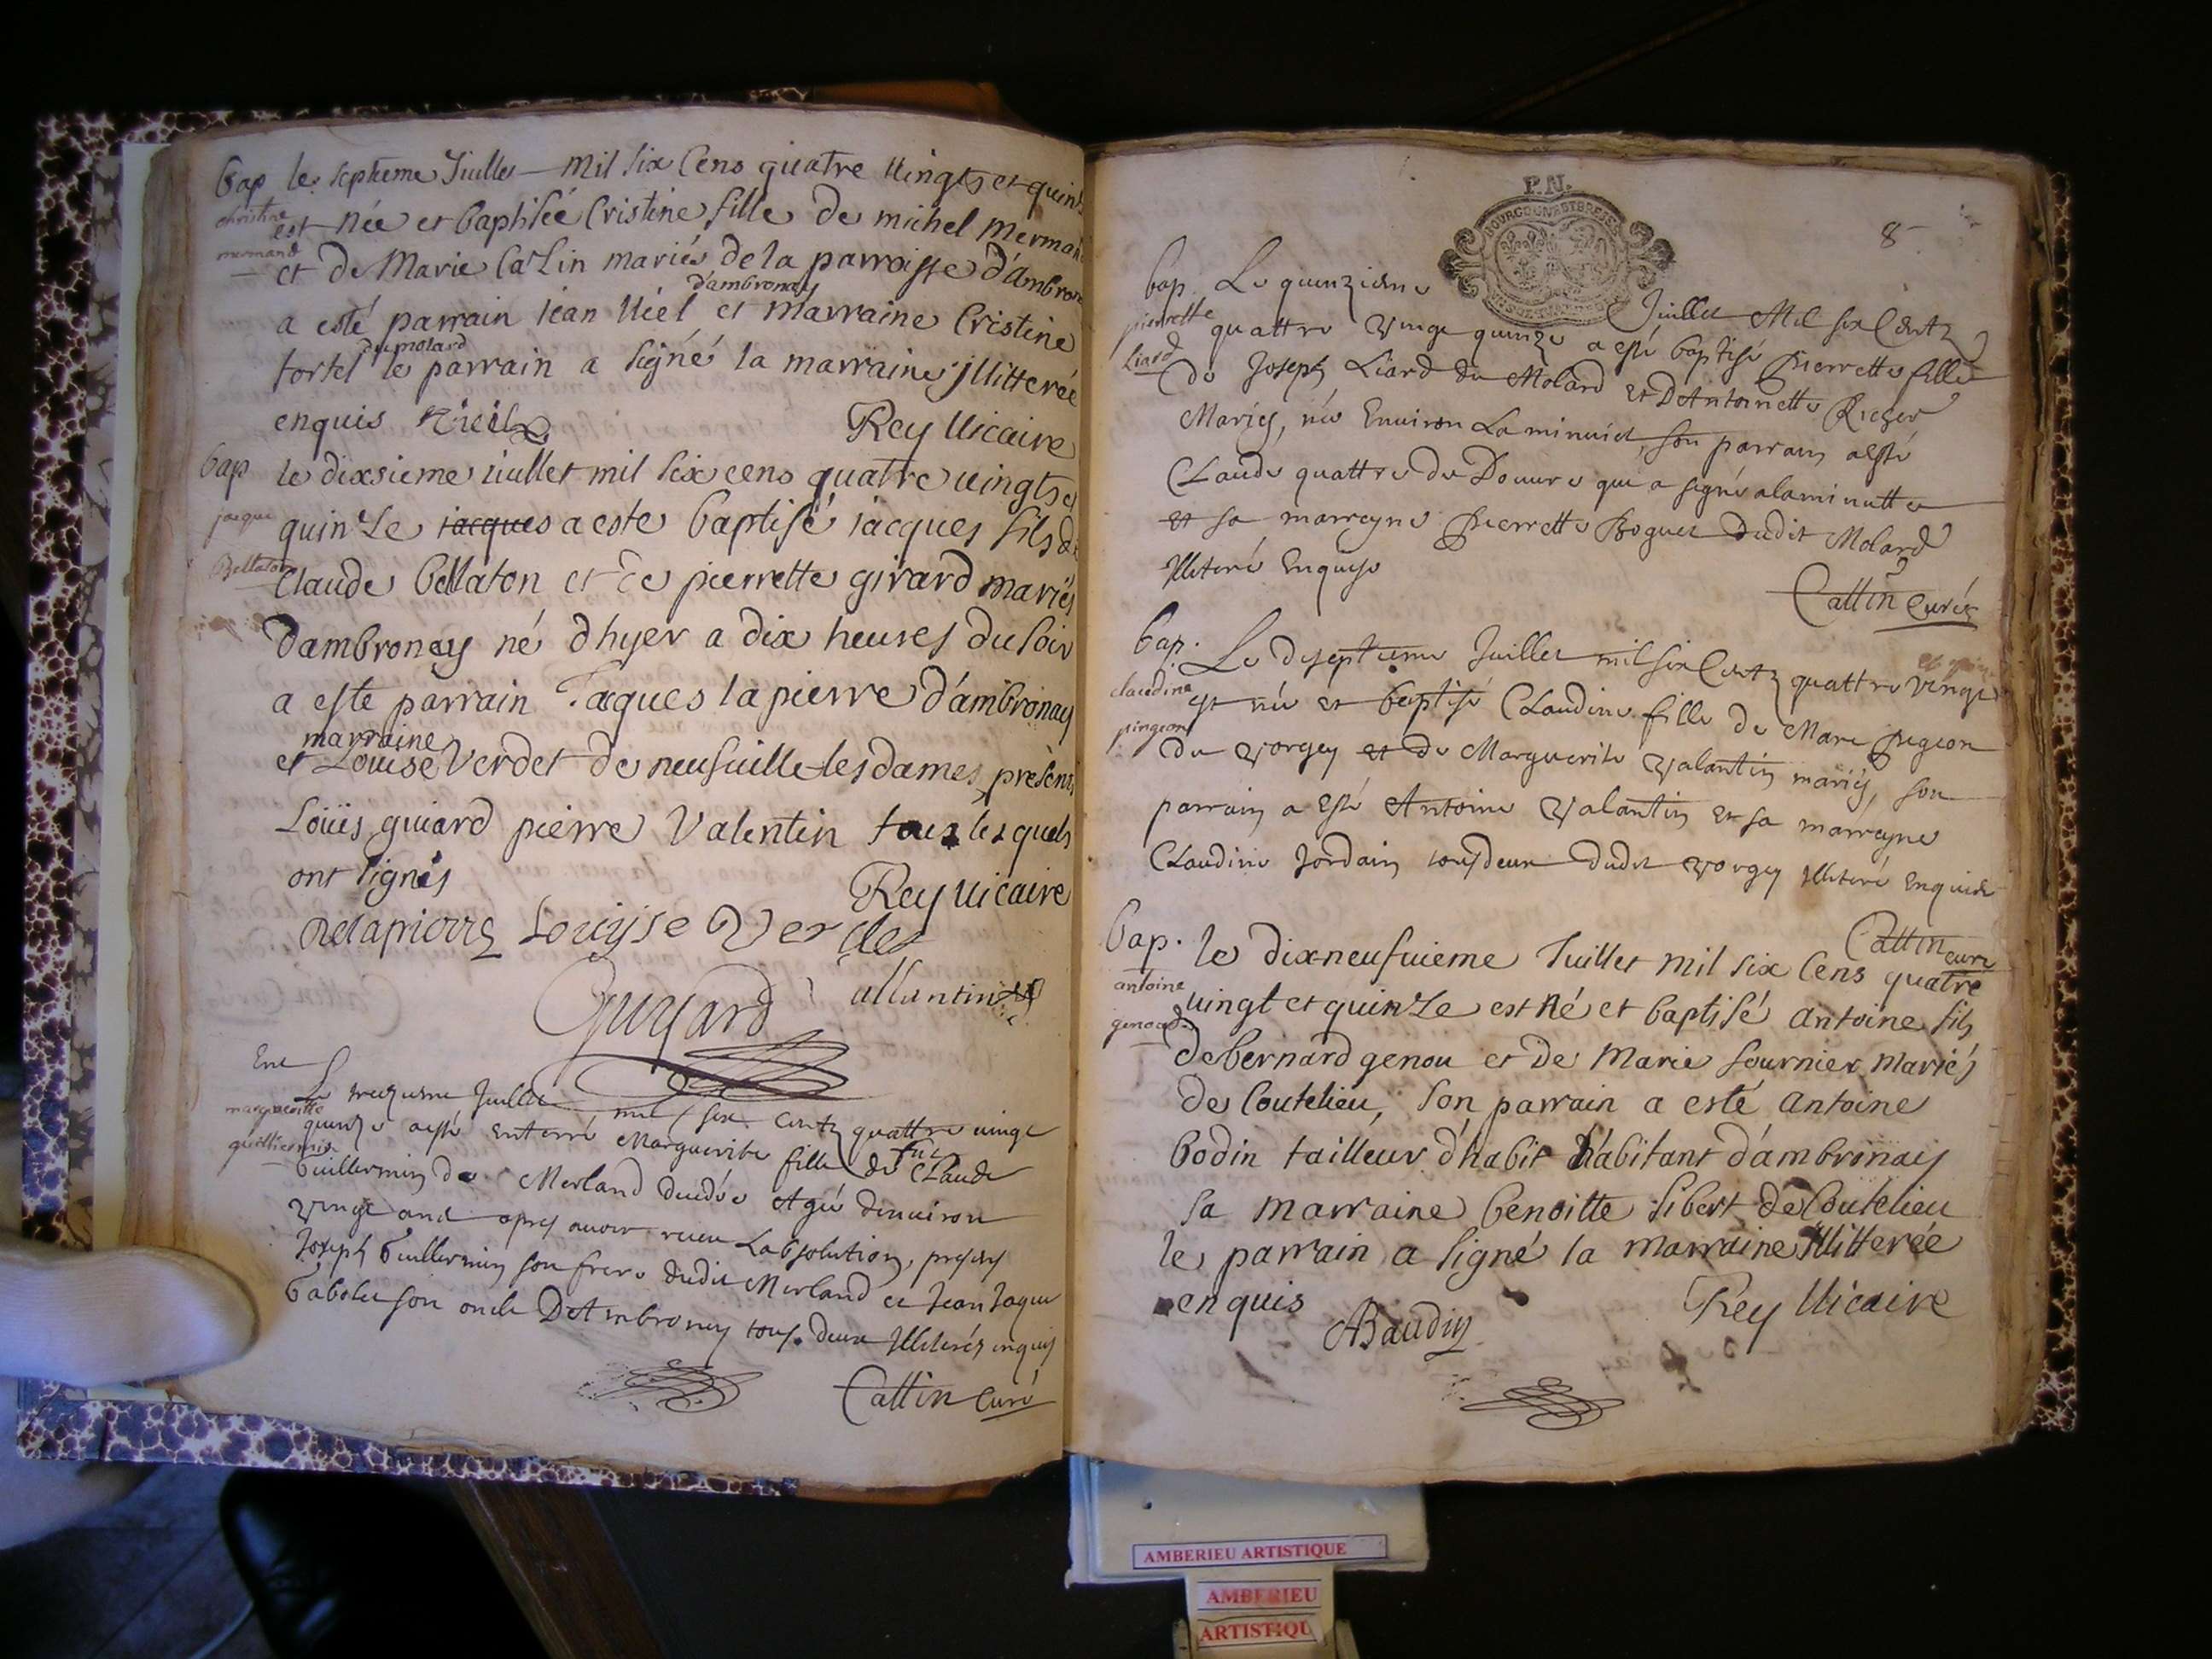 bap le septieme Juillet mil six Cens quatre uingts et quin
christine est née et baptisée Cristine fille de michel merman
mermand et de Marie Cazin mariés de la parroisse d'Ambron
d'ambronay
a esté parrain iean Niel et marraine Cristine
du molard
tortel le parrain a signé la marraine jllitterée
enquis Niel Rey Uicaire
bap le dixsieme iuillet mil six cens quatre uingts et
jacque quinze iacques a este baptisé iacques fils de
Bellaton Claude bellaton et de pierrette girard mariés
Dambronay né dhyer a dix heures du soir
a este parrain Jacques lapierre d'ambronay
marraine
et Louise Verdet de neufuille les dames présens
Loüis guiard pierre Valentin tous lesquels
ont signés Rey Uicaire
Delapierre Louijse Verdet
Guyard uallantin
Ent
Le treizieme Juillet mil six centz quattre uingt
marguerite quinze a esté enterré Marguerite fille de feu Claude
guilliermin Guillermin de Merland dudée Agée denuiron
vingt ans apres auoir receu Labsolution, presens
Joseph Guillermin son frere dudit Merland et Jean Jaque
Babolet son oncle D'Ambronay tous deux Jlliterés enquis
Cattin Curé
P.N.
BOURGOGNE ET BRESSE
8
bap. Le quinzieme Juillet Mil six Centz
pierrette quattre vingt quinze a esté baptisé Pierrette fille
liard de Joseph Liard du Molard et D'Antoinette
Mariés, née Enuiron La minuict, son parrain a esté
Claude quattre de Douure qui a signé a la minutte
et sa marreyne Pierrette Boguet dudit Molard
Jlliteré Enquise
Cattin Curé
bap. Le diseptieme Juillet mil six Centz quattre vingt
claudine est née et baptisé Claudine fille de Marc Pigeon
pingeon du vorgey et de Marguerite Valantin mariés, son
parrain a esté Antoine Valantin et sa marreyne
Claudine Jordain tous deux dudit vorgey Jlliteré Enquis
Cattin curé
bap. le dixneufuieme Juillet mil six Cens quatre
antoine uingt et quinze est né et baptisé antoine fils
genoud de bernard genou et de Marie fournier mariés
de Coutelieu, son parrain a esté antoine
bodin tailleur d'habit habitant d'ambronay
sa marraine benoitte sibert de Coutelieu
le parrain a signé la marraine jllitterée
enquis Rey Uicaire
ABaudin
AMBERIEU ARTISTIQUE
AMBERIEU
ARTISTIQU